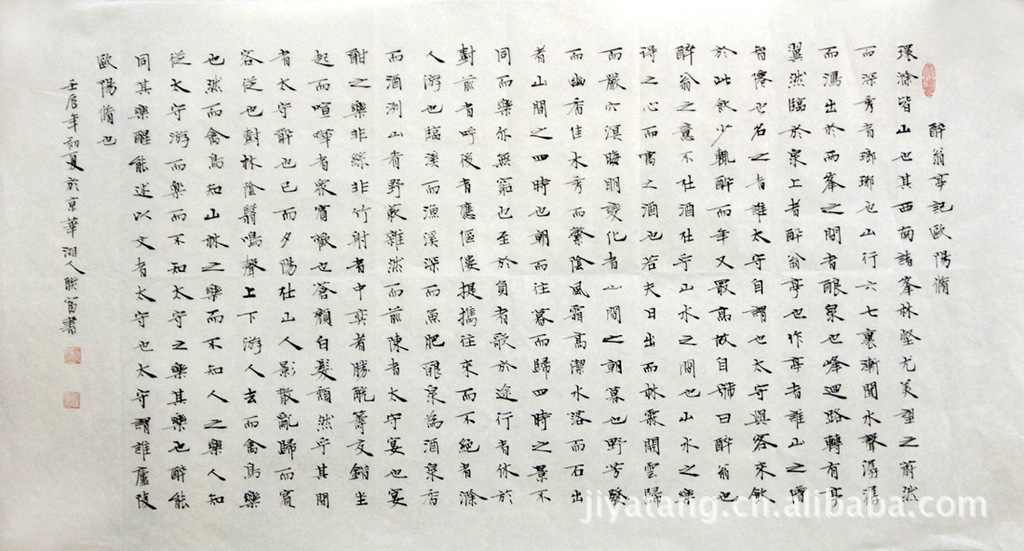 醉翁亭記歐陽脩
環滁皆山也其西南諸峯林壑尤美望之蔚然
而深秀者瑯琊也山行六七裏漸聞水聲潺潺
而瀉出於兩峯之間者釀泉也峰迴路轉有亭
翼然臨於泉上者醉翁亭也作亭者誰山之僧
智僊也名之者誰太守自謂也太守與客來飲
於此飲少輒醉而年又最高故自號曰醉翁也
醉翁之意不在酒在乎山水之間也山水之樂
得之心而寓之酒也若夫日出而林霏開雲歸
而巖穴暝晦明變化者山間之朝暮也野芳發
而幽香佳木秀而繁陰風霜高潔水落而石出
者山間之四時也朝而往暮而歸四時之景不
同而樂亦無窮也至於負者歌於途行者休於
樹前者呼後者應傴僂提攜往來而不絕者滁
人游也臨溪而漁溪深而魚肥釀泉為酒泉香
而酒洌山肴野蔌雜然而前陳者太守宴也宴
酣之樂非絲非竹射者中奕者勝觥籌交錯坐
起而喧嘩者衆賓懽也蒼顏白髮頹然乎其間
者太守醉也已而夕陽在山人影散亂歸而賓
客從也樹林陰翳鳴聲上下游人去而禽鳥樂
也然而禽鳥知山林之樂而不知人之樂人知
從太守游而樂而不知太守之樂其樂也醉能
同其樂醒能述以文者太守也太守謂誰廬陵
歐陽脩也
壬辰年初夏於京華湘人富書
jiyatang.cn.alibaba.com